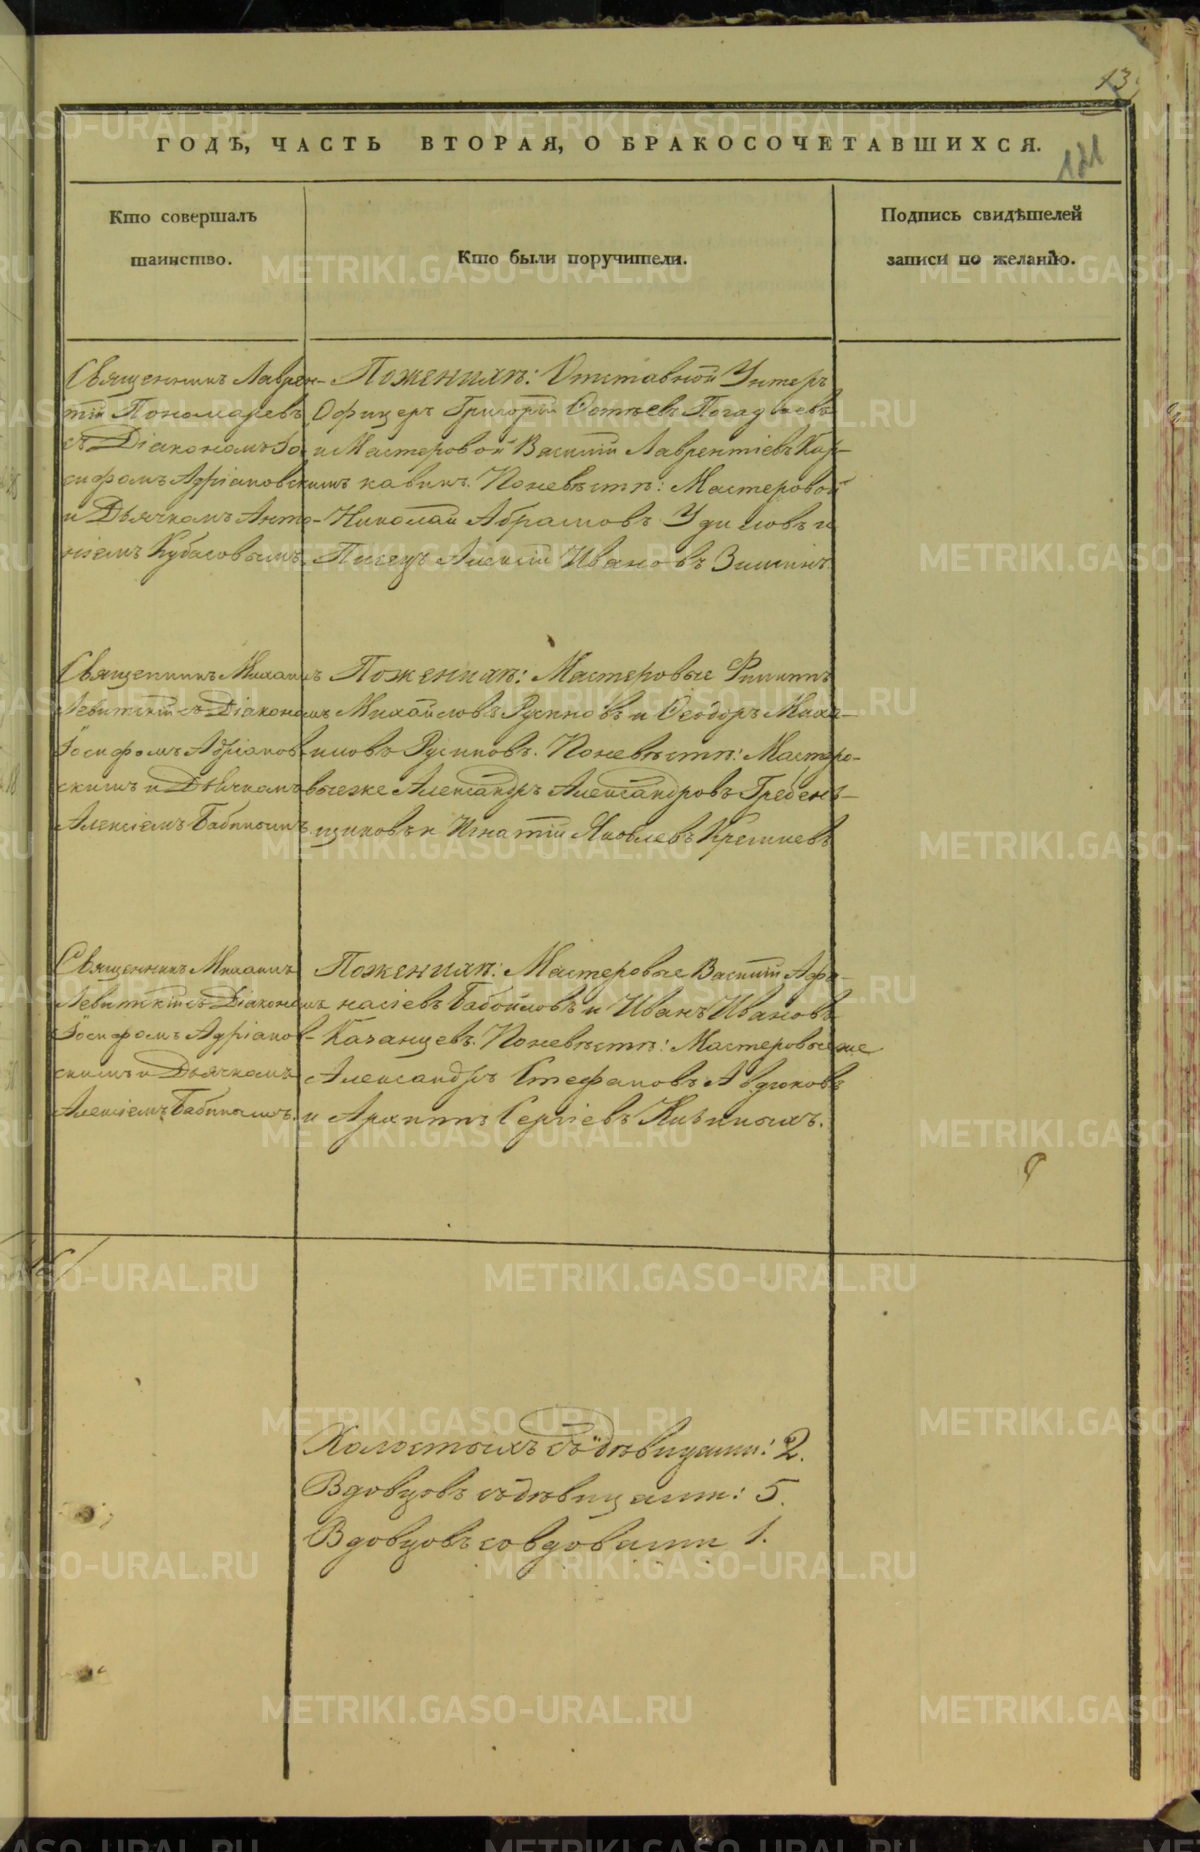 13
ГОДЪ, ЧАСТЬ ВТОРАЯ, О БРАКОСОЧЕТАВШИХСЯ.
121
Кто совершалъ
таинство.
Кто были поручители.
Подпись свидѣтелей
записи по желанію.
Священникъ Лаврен-
тій Пономаревъ
съ Діакономъ Іо-
сифомъ Адріановскимъ
и Дьячкомъ Анто-
ніемъ Кубасовымъ
По женихѣ: Отставной Унтеръ
Офицеръ Григорій
и Мастеровой Василий Лаврентіевъ Кир-
кавинъ. По невѣстѣ: Мастеровой
Николай Абрамовъ и
Писецъ Алексій Ивановъ Зиминъ.
Священникъ Михаилъ
Левитскій съ Діакономъ
Іосифомъ Адріанов-
скимъ и Дьячкомъ
Алексіемъ Бабинымъ.
По женихѣ: Мастеровые Филиппъ
Михайловъ Русиновъ и Ѳеодоръ Миха-
иловъ Русиновъ. По невѣстѣ: Мастеро-
вые же Александръ Александровъ Гребень-
щиковъ и Игнатій Яковлевъ
Священникъ Михаилъ
Левитскій съ Діакономъ
Іосифомъ Адріанов-
скимъ и Дьячкомъ
Алексіемъ Бабинымъ.
По женихѣ: Мастеровые Василій Аѳа-
насіевъ и Иванъ Ивановъ
Казанцевъ. По невѣстѣ: Мастеровые же
Александръ Стефановъ Авдюковъ
и Архипъ Сергіевъ
Холостыхъ съ дѣвицами: 2.
Вдовцовъ съ дѣвицами: 5.
Вдовцовъ со вдовами 1.
METRIKI.GASO-URAL.RU